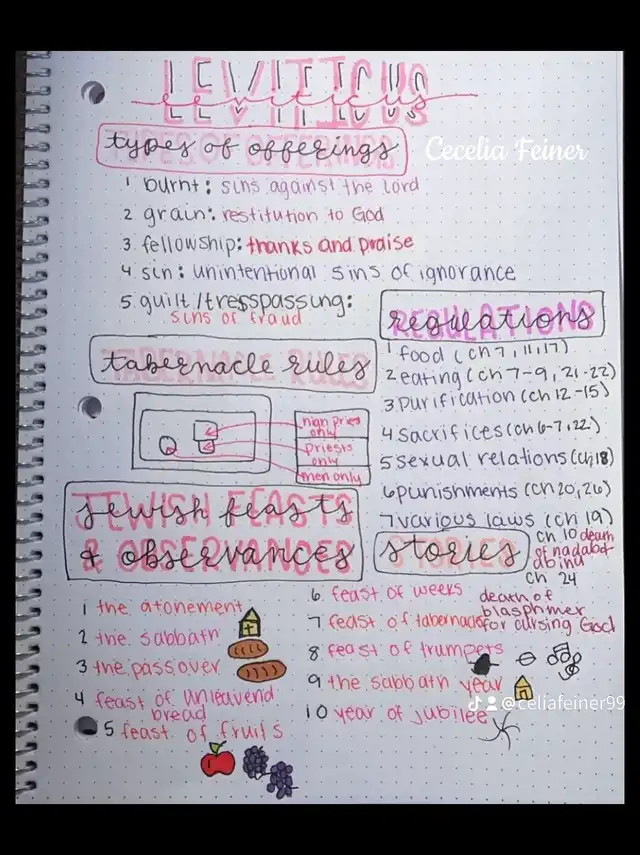 LEVITICUS
leviticus
types of offerings
TYPES OF OFFERINGS
Cecelia Feiner
1 burnt: sins against the lord
2 grain: restitution to God
3 fellowship: thanks and praise
4 sin: unintentional sins of ignorance
5 guilt/tresspassing:
sins of fraud
regulations
REGULATIONS
1 food (ch 7, 11, 17)
2 eating (ch 7-9, 21-22)
3 purification (ch 12-15)
4 sacrifices (ch 6-7, 22)
5 sexual relations (ch 18)
6 punishments (ch 20, 26)
7 various laws (ch 19)
tabernacle rules
TABERNACLE RULES
high priest
only
priests
only
men only
jewish feasts
JEWISH FEASTS
& observances
& OBSERVANCES
1 the atonement
2 the sabbath
3 the passover
4 feast of unleavend
bread
5 feast of fruits
6 feast of weeks
7 feast of tabernacls
8 feast of trumpets
9 the sabbath year
10 year of jubilee
stories
STORIES
ch 10 death
of nadab &
abihu
ch 24
death of
blasphmer
for cursing God
@celiafeiner99